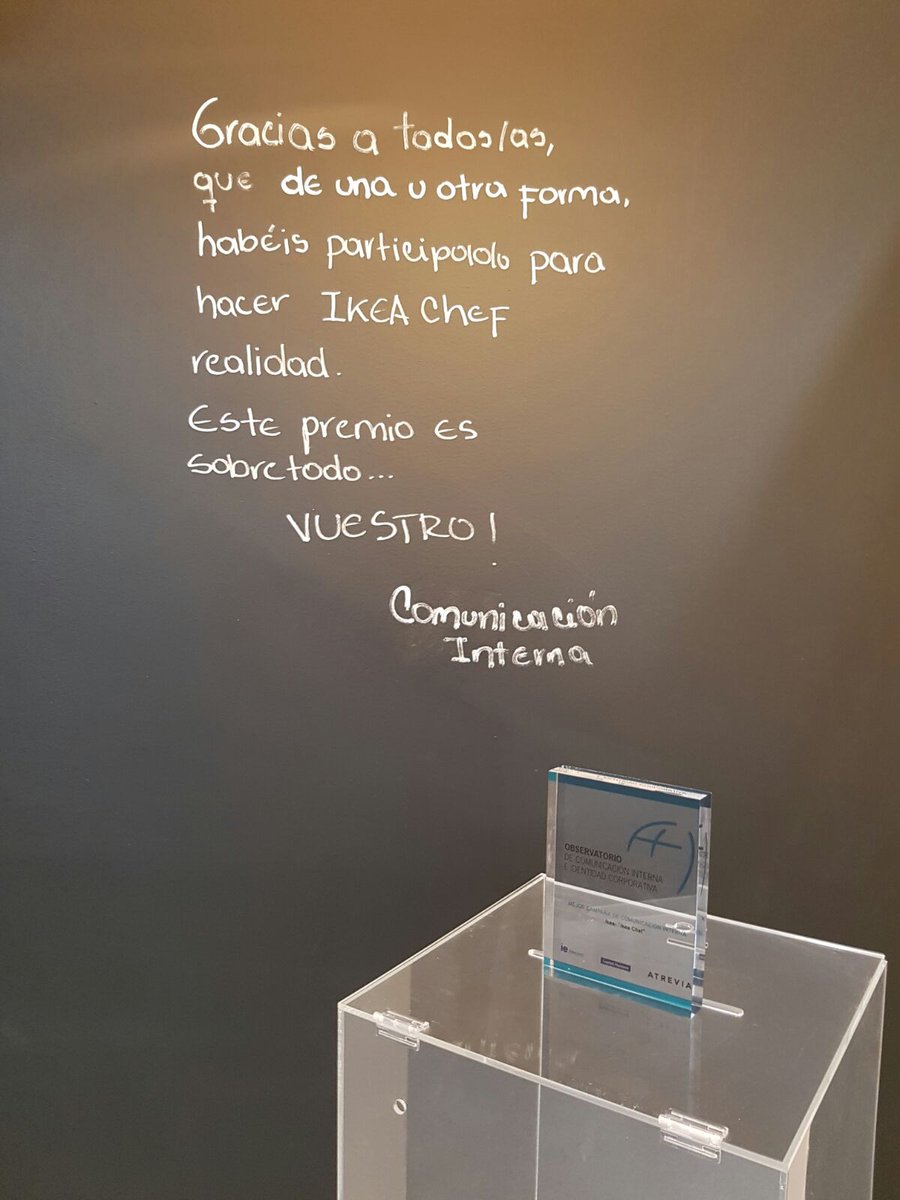 Gracias a todos/as,
que de una u otra forma,
habéis participado para
hacer IKEA Chef
realidad.
Este premio es
sobretodo...
VUESTRO!
Comunicación
Interna
OBSERVATORIO
DE COMUNICACIÓN INTERNA
E IDENTIDAD CORPORATIVA
MEJOR CAMPAÑA DE COMUNICACIÓN INTERNA
Ikea: "Ikea Chef"
ie
ATREVIA